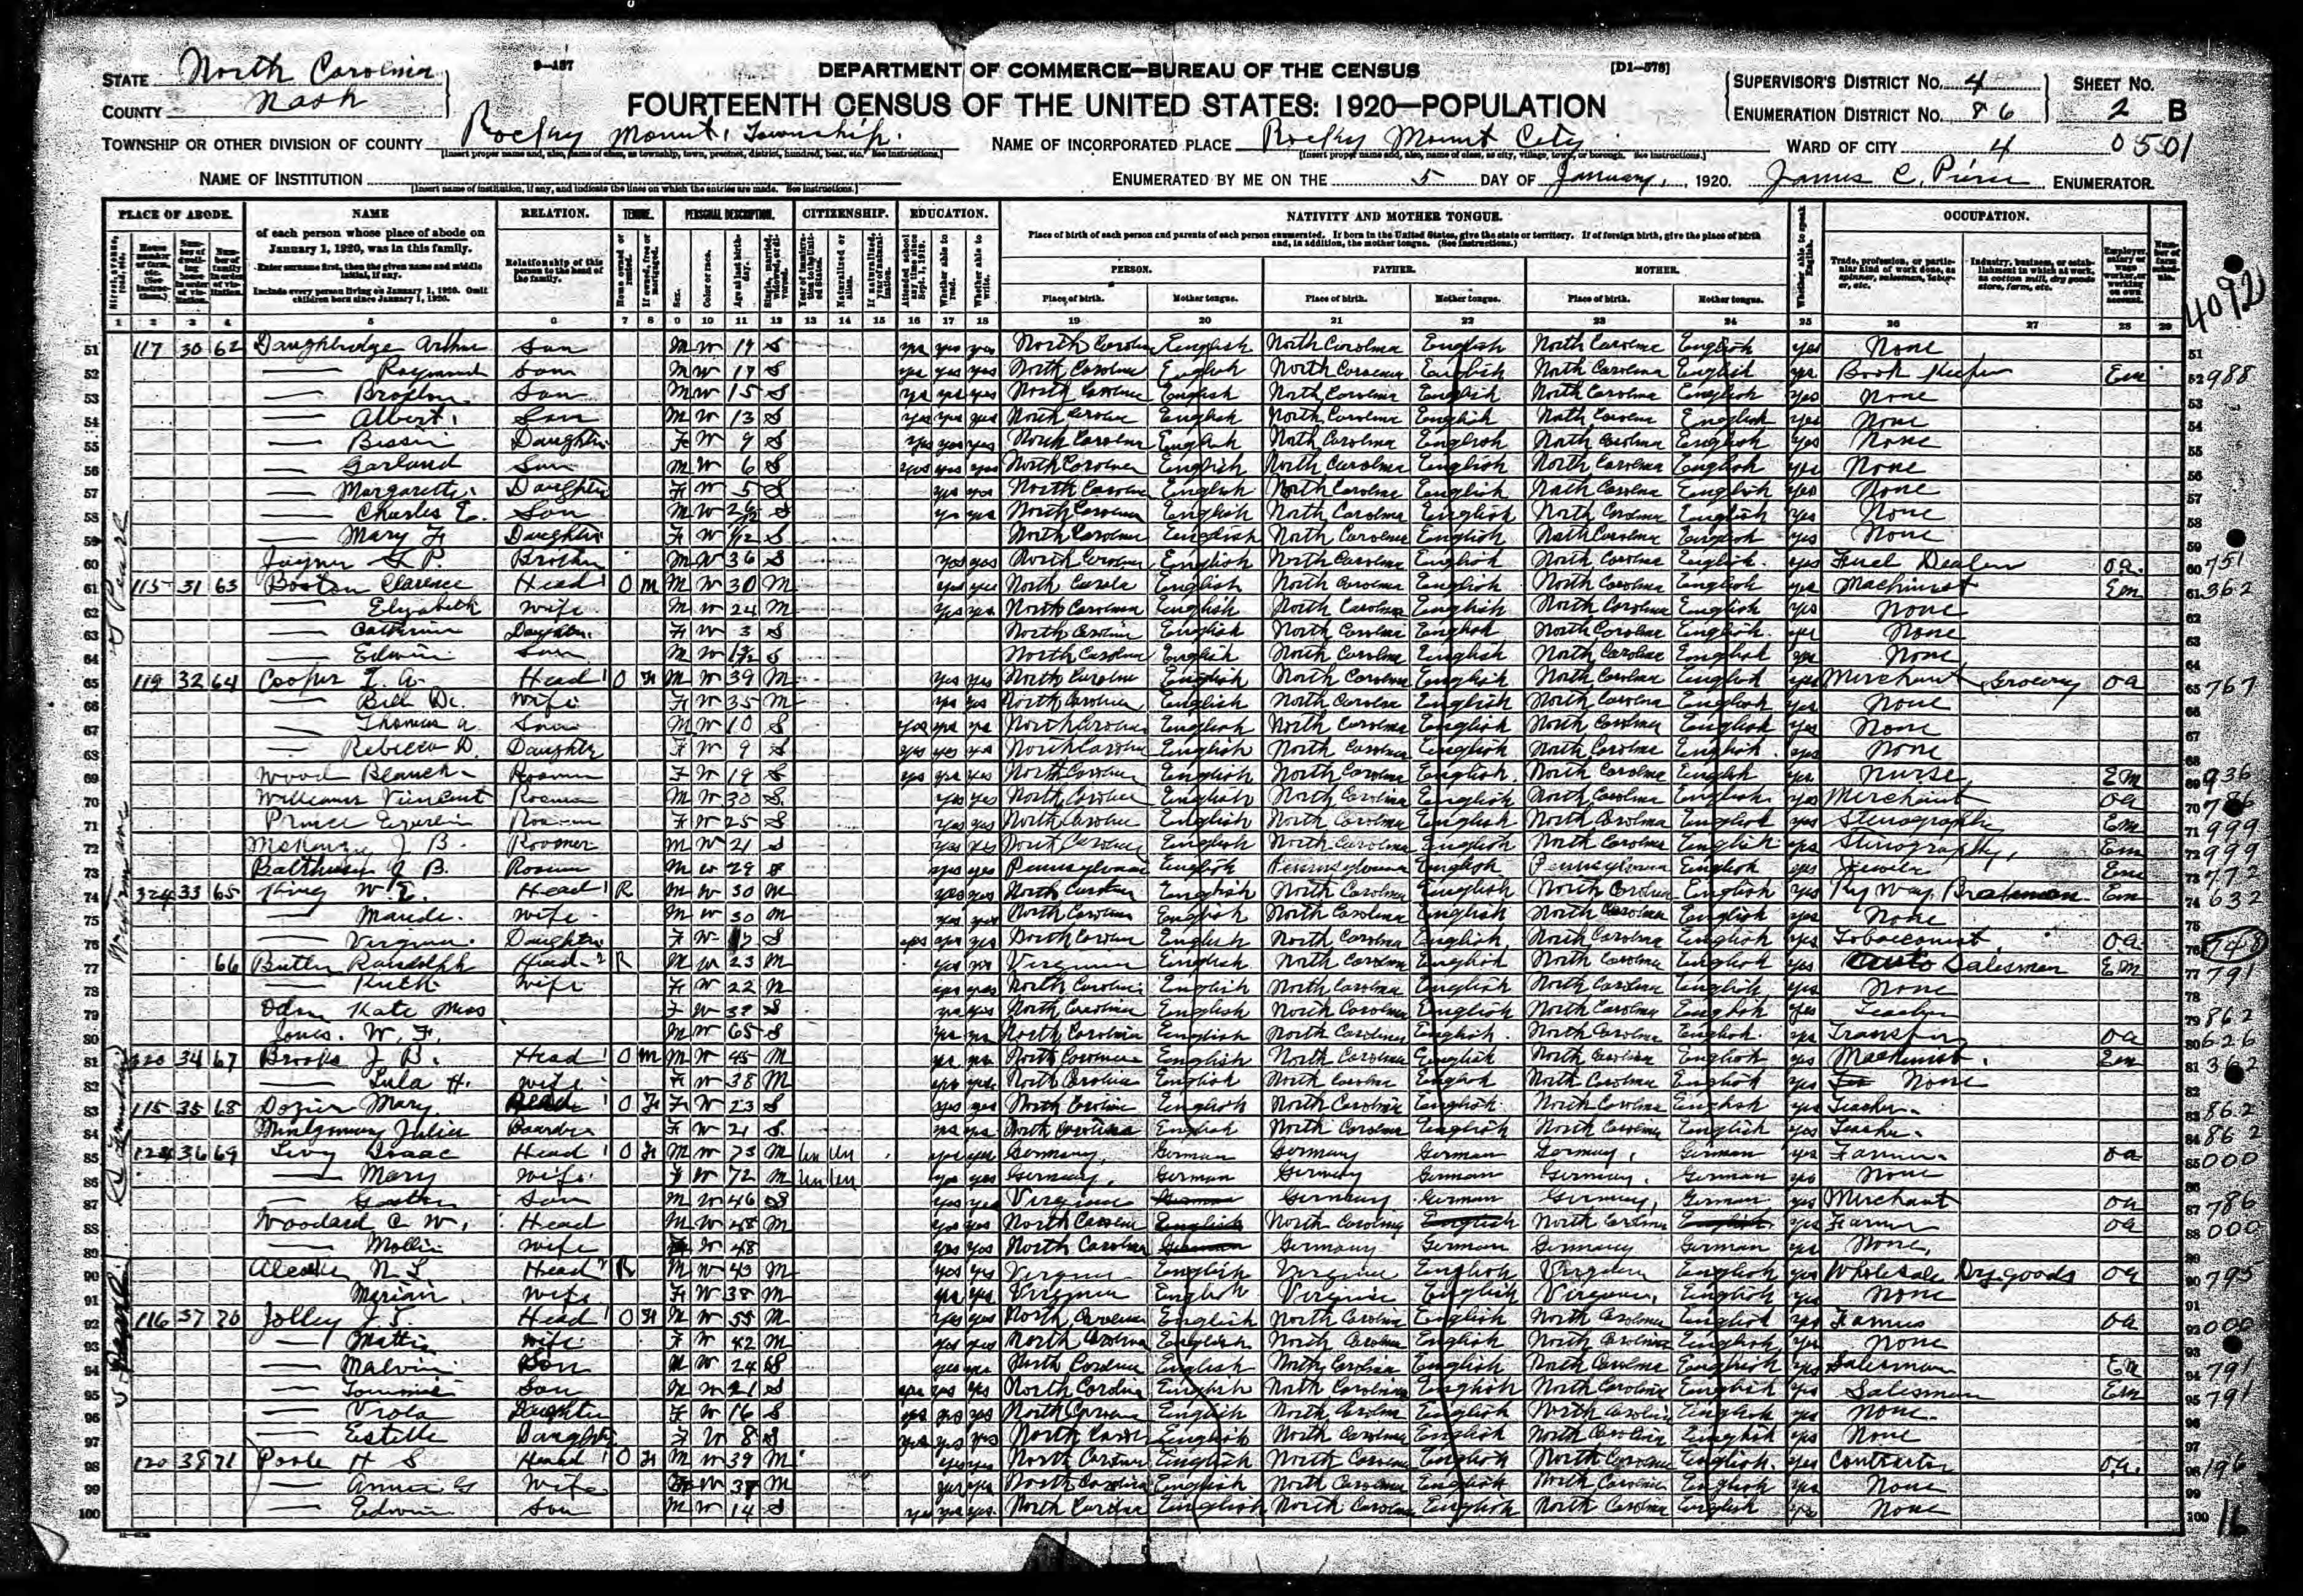 STATE North Carolina
COUNTY Nash
9-157
DEPARTMENT OF COMMERCE—BUREAU OF THE CENSUS
[D1-578]
FOURTEENTH CENSUS OF THE UNITED STATES: 1920—POPULATION
SUPERVISOR'S DISTRICT No. 4
ENUMERATION DISTRICT No. 86
SHEET No.
2 B
TOWNSHIP OR OTHER DIVISION OF COUNTY Rocky Mount, Township.
[Insert proper name and, also, name of class, as township, town, precinct, district, hundred, beat, etc. See instructions.]
NAME OF INCORPORATED PLACE Rocky Mount City
[Insert proper name and, also, name of class, as city, village, town, or borough. See instructions.]
WARD OF CITY 4
0501
NAME OF INSTITUTION
[Insert name of institution, if any, and indicate the lines on which the entries are made. See instructions.]
ENUMERATED BY ME ON THE 5 DAY OF January, 1920. James C. ENUMERATOR.
PLACE OF ABODE. NAME RELATION. TENURE. PERSONAL DESCRIPTION. CITIZENSHIP. EDUCATION. NATIVITY AND MOTHER TONGUE. OCCUPATION.
of each person whose place of abode on January 1, 1920, was in this family.
Enter surname first, then the given name and middle initial, if any.
Include every person living on January 1, 1920. Omit children born since January 1, 1920.
Relationship of this person to the head of the family.
Place of birth of each person and parents of each person enumerated. If born in the United States, give the state or territory. If of foreign birth, give the place of birth and, in addition, the mother tongue. (See instructions.)
PERSON. FATHER. MOTHER.
Place of birth. Mother tongue. Place of birth. Mother tongue. Place of birth. Mother tongue.
1 2 3 4 5 6 7 8 9 10 11 12 13 14 15 16 17 18 19 20 21 22 23 24 25 26 27 28 29
4092
51 117 30 62 Daughtridge Arthur Son M W 19 S yes yes yes North Carolina English North Carolina English North Carolina English yes None 51
52 Raymond Son M W 17 S yes yes yes North Carolina English North Carolina English North Carolina English yes Book Keeper Em 52 988
53 Son M W 15 S yes yes yes North Carolina English North Carolina English North Carolina English yes None 53
54 Albert Son M W 13 S yes yes yes North Carolina English North Carolina English North Carolina English yes None 54
55 Daughter F W 9 S yes yes yes North Carolina English North Carolina English North Carolina English yes None 55
56 Garland Son M W 6 S yes yes yes North Carolina English North Carolina English North Carolina English yes None 56
57 Daughter F W 5 S yes yes North Carolina English North Carolina English North Carolina English yes None 57
58 Charles E. Son M W S yes yes North Carolina English North Carolina English North Carolina English yes None 58
59 Mary F Daughter F W S North Carolina English North Carolina English North Carolina English yes None 59
60 Joyner P. Brother M W 36 S yes yes North Carolina English North Carolina English North Carolina English yes Fuel Dealer oa 60 751
61 115 31 63 Boston Clarence Head 1 O M M W 30 M yes yes North Carolina English North Carolina English North Carolina English yes Machinist Em 61 362
62 Elizabeth Wife M W 24 M yes yes North Carolina English North Carolina English North Carolina English yes None 62
63 Catherine Daughter F W 3 S North Carolina English North Carolina English North Carolina English yes None 63
64 Edwin Son M W S North Carolina English North Carolina English North Carolina English yes None 64
65 119 32 64 Cooper T. A. Head 1 O F M W 39 M yes yes North Carolina English North Carolina English North Carolina English yes Merchant Grocery oa 65 767
66 Wife F W 35 M yes yes North Carolina English North Carolina English North Carolina English yes None 66
67 Thomas A. Son M W 10 S yes yes yes North Carolina English North Carolina English North Carolina English yes None 67
68 Rebecca D. Daughter F W 9 S yes yes yes North Carolina English North Carolina English North Carolina English yes None 68
69 Wood Blanch Roomer F W 19 S yes yes yes North Carolina English North Carolina English North Carolina English yes Nurse Em 69 936
70 Williams Vincent Roomer M W 30 S yes yes North Carolina English North Carolina English North Carolina English yes Merchant oa 70
71 Roomer F W 25 S yes yes North Carolina English North Carolina English North Carolina English yes Stenographer Em 71 999
72 J B. Roomer M W 21 S yes yes North Carolina English North Carolina English North Carolina English yes Stenographer Em 72 999
73 J B. Roomer M W 29 S yes yes Pennsylvania English Pennsylvania English Pennsylvania English yes Jeweler Em 73 772
74 324 33 65 King W. E. Head 1 R M W 30 M yes yes North Carolina English North Carolina English North Carolina English yes Ry Way Brakeman Em 74 632
75 Maude Wife M W 30 M yes yes North Carolina English North Carolina English North Carolina English yes None 75
76 Virginia Daughter F W 12 S yes yes yes North Carolina English North Carolina English North Carolina English yes Tobacconist oa 76 748
77 66 Butler Randolph Head 2 R M W 23 M yes yes Virginia English North Carolina English North Carolina English yes Auto Salesman Em 77 791
78 Ruth Wife F W 22 M yes yes North Carolina English North Carolina English North Carolina English yes None 78
79 Odom Kate Miss F W S yes yes North Carolina English North Carolina English North Carolina English yes Teacher 79 862
80 Jones. W. F. M W 65 S yes yes North Carolina English North Carolina English North Carolina English yes Transfer oa 80 626
81 320 34 67 Brooks J B. Head 1 O M M W 45 M yes yes North Carolina English North Carolina English North Carolina English yes Machinist Em 81 362
82 Lula H. Wife F W 38 M yes yes North Carolina English North Carolina English North Carolina English yes None 82
83 115 35 68 Dozier Mary Head 1 O F F W 23 S yes yes North Carolina English North Carolina English North Carolina English yes Teacher 83 862
84 Montgomery Julia Boarder F W 21 S yes yes North Carolina English North Carolina English North Carolina English yes Teacher 84 862
85 124 36 69 Levy Isaac Head 1 O F M W 73 M Un Un yes yes Germany German Germany German Germany German yes Farmer oa 85 000
86 Mary Wife F W 72 M Un Un yes yes Germany German Germany German Germany German yes None 86
87 Son M W 46 S yes yes Virginia German Germany German Germany German yes Merchant oa 87 786
88 Woodard C W. Head M W 48 M yes yes North Carolina English North Carolina English North Carolina English yes Farmer oa 88 000
89 Mollie Wife F W 48 yes yes North Carolina German Germany German Germany German yes None 89
90 N L Head 2 R M W 43 M yes yes Virginia English Virginia English Virginia English yes Wholesale Dry goods oa 90 795
91 Wife F W 38 M yes yes Virginia English Virginia English Virginia English yes None 91
92 116 37 70 Jolley J. T. Head 1 O F M W 55 M yes yes North Carolina English North Carolina English North Carolina English yes Farmer oa 92 000
93 Mattie Wife F W 42 M yes yes North Carolina English North Carolina English North Carolina English yes None 93
94 Malvin Son M W 24 S yes yes North Carolina English North Carolina English North Carolina English yes Salesman Em 94 791
95 Tommie Son M W 21 S yes yes yes North Carolina English North Carolina English North Carolina English yes Salesman Em 95 791
96 Viola Daughter F W 16 S yes yes yes North Carolina English North Carolina English North Carolina English yes None 96
97 Estelle Daughter F W 8 S yes yes yes North Carolina English North Carolina English North Carolina English yes None 97
98 120 38 71 Poole H S Head 1 O F M W 39 M yes yes North Carolina English North Carolina English North Carolina English yes Contractor oa 98 196
99 Annie G Wife F W 37 M yes yes North Carolina English North Carolina English North Carolina English yes None 99
100 Edwin Son M W 14 S yes yes yes North Carolina English North Carolina English North Carolina English yes None 100 16